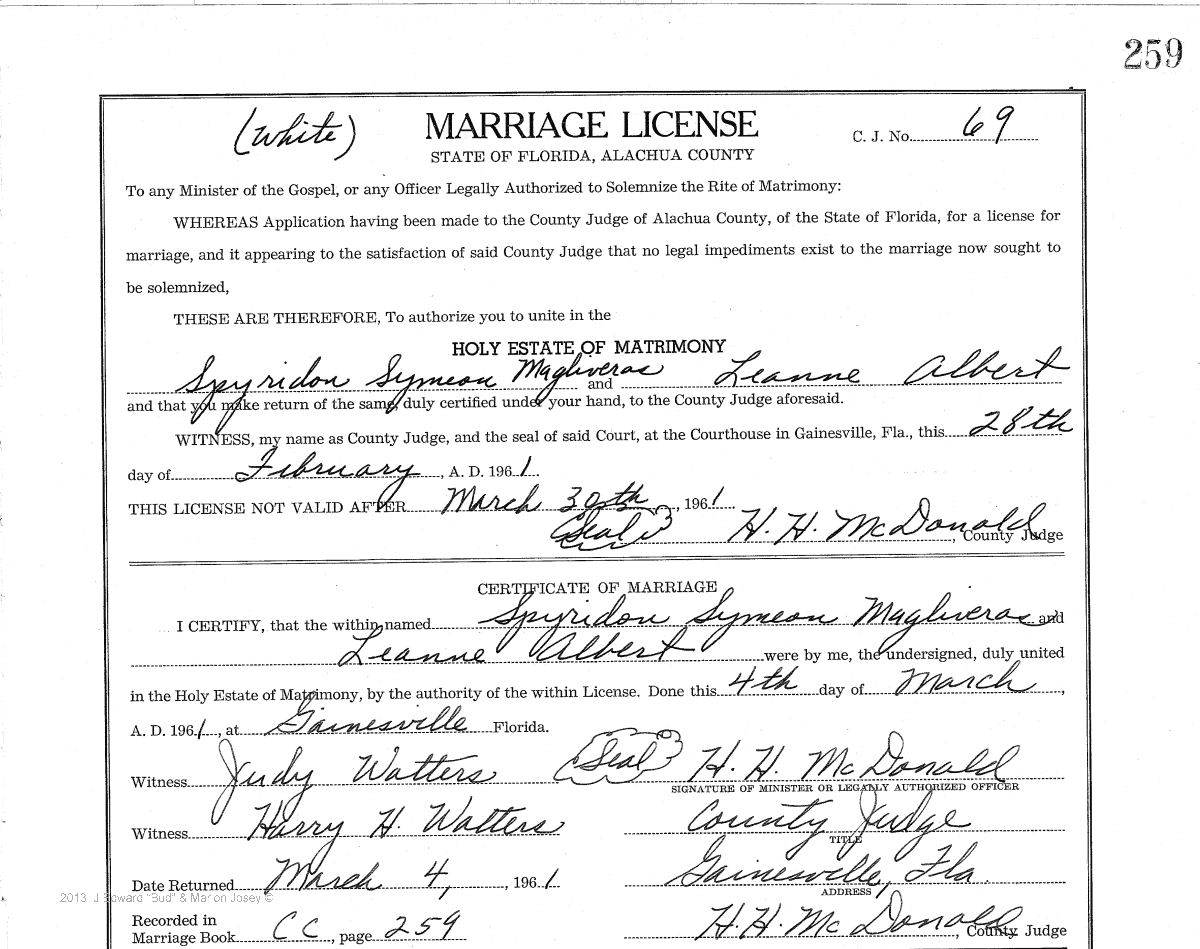 259
(White) MARRIAGE LICENSE C. J. No. 69
STATE OF FLORIDA, ALACHUA COUNTY
To any Minister of the Gospel, or any Officer Legally Authorized to Solemnize the Rite of Matrimony:
WHEREAS Application having been made to the County Judge of Alachua County, of the State of Florida, for a license for
marriage, and it appearing to the satisfaction of said County Judge that no legal impediments exist to the marriage now sought to
be solemnized,
THESE ARE THEREFORE, To authorize you to unite in the
HOLY ESTATE OF MATRIMONY
Spyridon Symeon Magliveras and Leanne Albert
and that you make return of the same, duly certified under your hand, to the County Judge aforesaid.
WITNESS, my name as County Judge, and the seal of said Court, at the Courthouse in Gainesville, Fla., this 28th
day of February, A. D. 1961.
THIS LICENSE NOT VALID AFTER March 30th, 1961
Seal H. H. McDonald, County Judge
CERTIFICATE OF MARRIAGE
I CERTIFY, that the within named Spyridon Symeon Magliveras and
Leanne Albert were by me, the undersigned, duly united
in the Holy Estate of Matrimony, by the authority of the within License. Done this 4th day of March,
A. D. 1961, at Gainesville Florida.
Witness Judy Watters Seal H. H. McDonald
SIGNATURE OF MINISTER OR LEGALLY AUTHORIZED OFFICER
Witness Harry H. Walters County Judge
TITLE
Date Returned March 4, 1961. Gainesville, Fla.
ADDRESS
2013 J Edward "Bud" & Marion Josey ©
Recorded in
Marriage Book CC, page 259 H. H. McDonald, County Judge